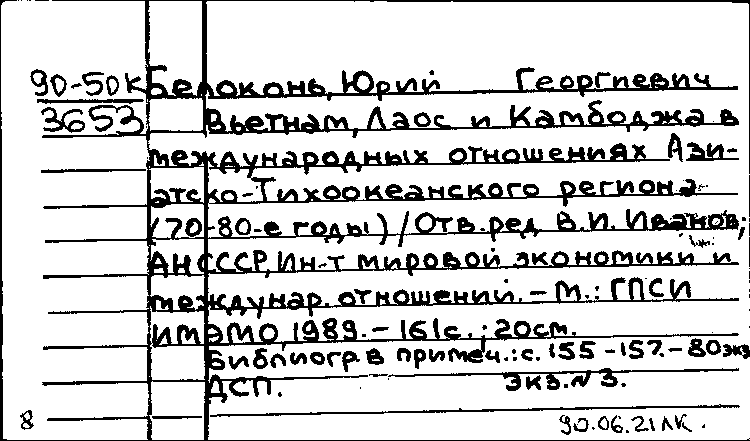 90-50К Белоконь, Юрий Георгиевич
3653 Вьетнам, Лаос и Камбоджа в
международных отношениях Ази-
атско-Тихоокеанского региона
(70-80-е годы) / Отв. ред. В.И. Иванов;
АН СССР, Ин-т мировой экономики и
междунар. отношений. – М.: ГПСИ
ИМЭМО, 1989. – 161 с.; 20 см.
Библиогр. в примеч.: с. 155-157. – 80 экз.
ДСП. Экз. N 3.
8 90.06.21 ЛК.